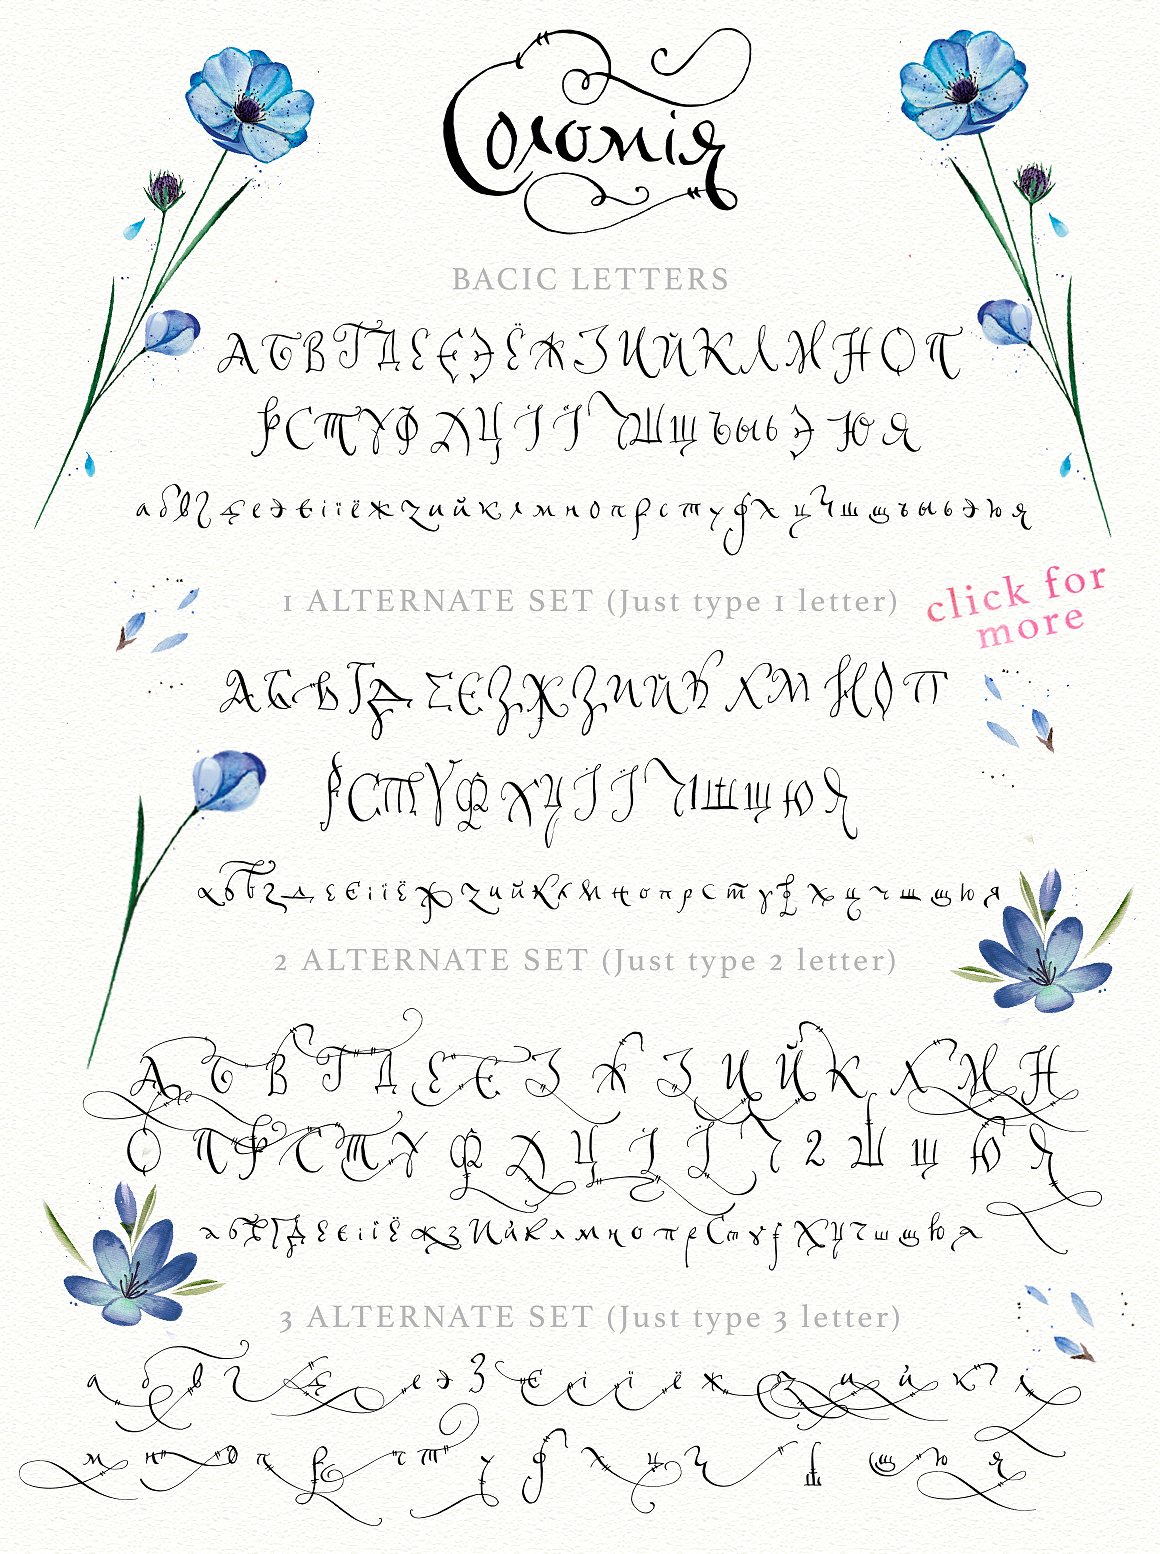 Соломія
BACIC LETTERS
АБВГДЕЄЭЁЖЗИЙКЛМНОП
РСТУФХЦІЇЧШЩЪЫЬЭЮЯ
абвгдеэєіїёжзийклмнопрстуфхцчшщъыьэюя
1 ALTERNATE SET (Just type 1 letter)
click for
more
АБВГДЕЄЗЖЗИЙКЛМНОП
РСТУФХЦІЇЧШЩЮЯ
абвгдеєіїёжзийклмнопрстуфхцчшщюя
2 ALTERNATE SET (Just type 2 letter)
АБВГДЕЄЗЖЗИЙКЛМН
ОПРСТУФХЦІЇЧ2ШЩЮЯ
абвгдеєіїёжзийклмнопрстуфхцчшщюя
3 ALTERNATE SET (Just type 3 letter)
абвгдеэЗєіїёжзийкл
мнопрстуфхцчшщюя